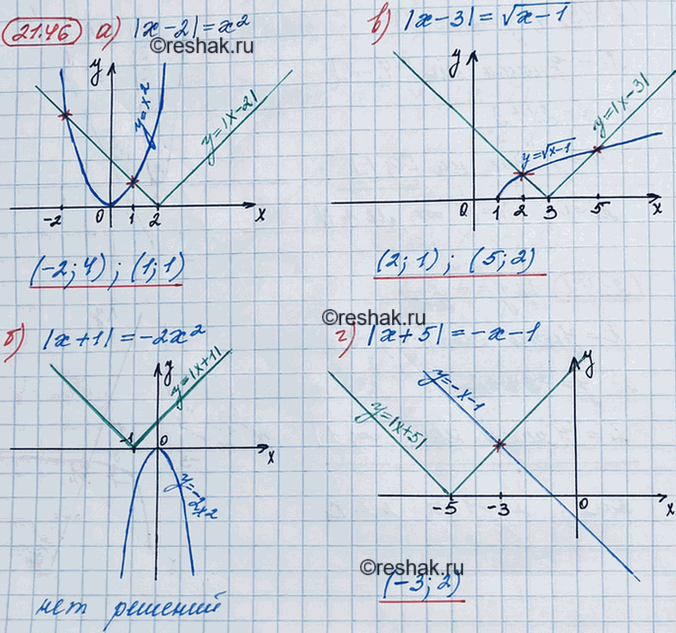 21.46 а) |x-2|=x²
©reshak.ru
y
y=x2
y=|x-2|
-2 0 1 2 x
(-2;4) ; (1;1)
в) |x-3|=√x-1
y
y=|x-3|
y=√x-1
0 1 2 3 5 x
(2;1) ; (5;2)
б) |x+1|=-2x²
y
y=|x+1|
-1 0 x
y=-2x2
нет решений
©reshak.ru
г) |x+5|=-x-1
y
y=-x-1
y=|x+5|
-5 -3 0 x
©reshak.ru
(-3;2)